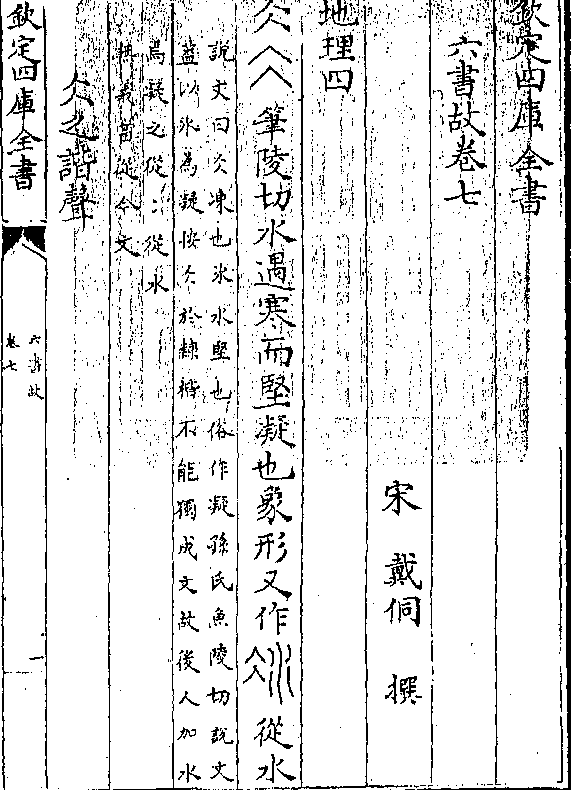 欽定四庫全書
六書故卷七
宋 戴侗 撰
地理四
仌 筆陵切水遇寒而堅凝也象形又作 從水
說文曰仌凍也冰水堅也俗作凝孫氏魚陵切說文
益以冰為凝按仌於隸楷不能獨成文故後人加水
焉凝之從冫從水
義當從今文
仌之諧聲
欽定四庫全書
六書故
卷七
一